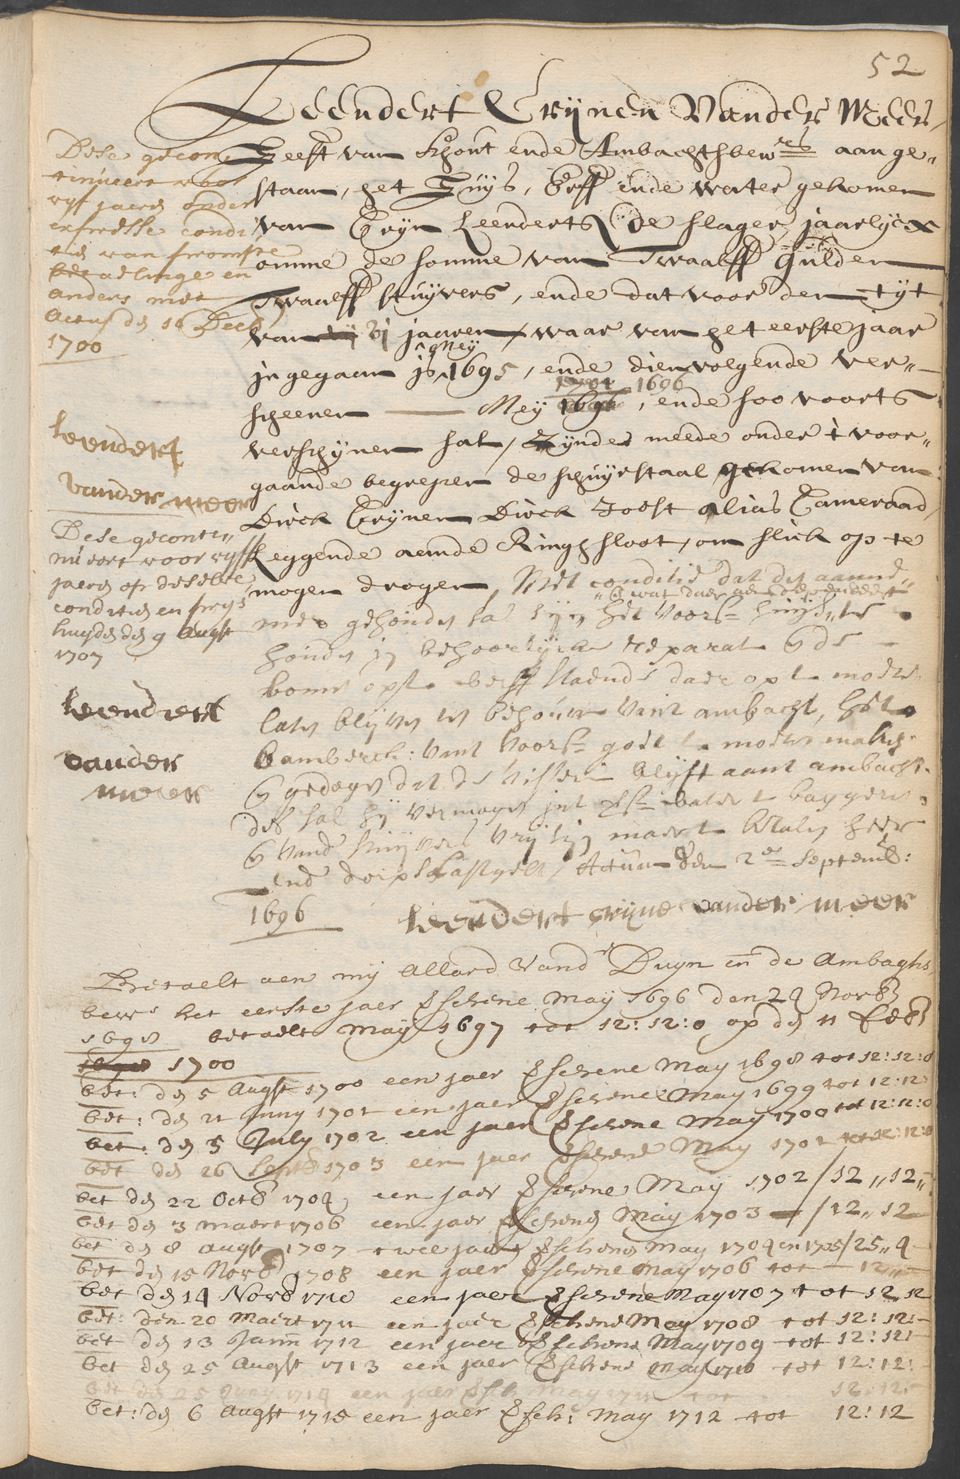 52
Leendert Crijnen Vander Meer
Heeft van Schout ende Ambachtbewrs aange-
staan, het Huijs, Erff ende water gekomen
van Crijn Leenderts de slager, jaarlijcx
omme de somme van Twaalff gulden
Twaalff stuijvers, ende dat voor den tijt
van vij jaaren, waar van het eerste jaar
in gegaan is Meij 1695, ende dienvolgende ver-
scheenen Meij 1696, ende soo voorts
verschijnen sal, Zijnde meede onder t voor-
gaande begrepen de schuijrstaal gekomen van
Dirck Crijnen Dirck Joost alias Cameraad,
Leggende aende Ringhsloot, om slick op te
mogen drogen, Met conditie dat den aanne-
mer gehouden sal sijn het voorsz huijs te
houden in behoorlijcke reparatie
bomen opt werff staende daer op te moeten
laten blijven ten behouve vant ambacht, het
vant voorsz goet te moeten maken
gedogen dat de visserij blijft aant ambacht
des sal hij vermogen int water te baggeren
stuijvers vrij sijn maer te betalen heer
Actum den 2en Septemb:
1696
Leendert crijne vander meer
Dese gecon-
tinueert voor
vijf jaeren onder
deselfde condi-
tie van prompte
betaelinge en
anders niet
Actum den 16 Decb
1700
Leendert
vander meer
Dese geconti-
nueert voor vijff
jaeren op deselve
conditien en prijs
huijden den 9 Augst
1707
Leendert
vander
meer
Betaelt aen mij Allard Vandr Duijn en de Ambaghs
bewrs het eerste jaer Verschene May 1696 den 29 Novb
1698 betaelt May 1697 tot 12:12:0 op den 11 Feb
1700
bet: den 5 Augst 1700 een jaer Verschene May 1698 tot 12:12:0
bet: den 21 Juny 1701 een jaer Verschene May 1699 tot 12:12
bet: den 5 July 1702 een jaer Verschene May 1700 tot 12:12:0
bet den 26 Septb 1703 een jaer Verschene May 1701 tot 12:12:0
bet den 22 Octb 1704 een jaer Verschene Maij 1702 / 12,,12,,
bet den 3 maert 1706 een jaer Verschene Maij 1703 / 12,,12
bet den 8 augst 1707 twee jaer Verschene May 1704 en 1705 / 25,,4
bet den 15 Novb 1708 een jaer Verschene May 1706 tot 12
bet den 14 Novb 1710 een jaer Verschene May 1707 tot 12,12
bet: den 20 Maert 1711 een jaer Verschene May 1708 tot 12:12:-
bet den 13 Janu 1712 een jaer Verschene May 1709 tot 12:12:
bet den 25 Augst 1713 een jaer Verschene May 1710 tot 12:12:
bet den 25 1714 een jaer Versch: May 1711 tot 12:12:
bet: den 6 Augst 1715 een jaer Versch: May 1712 tot 12:12